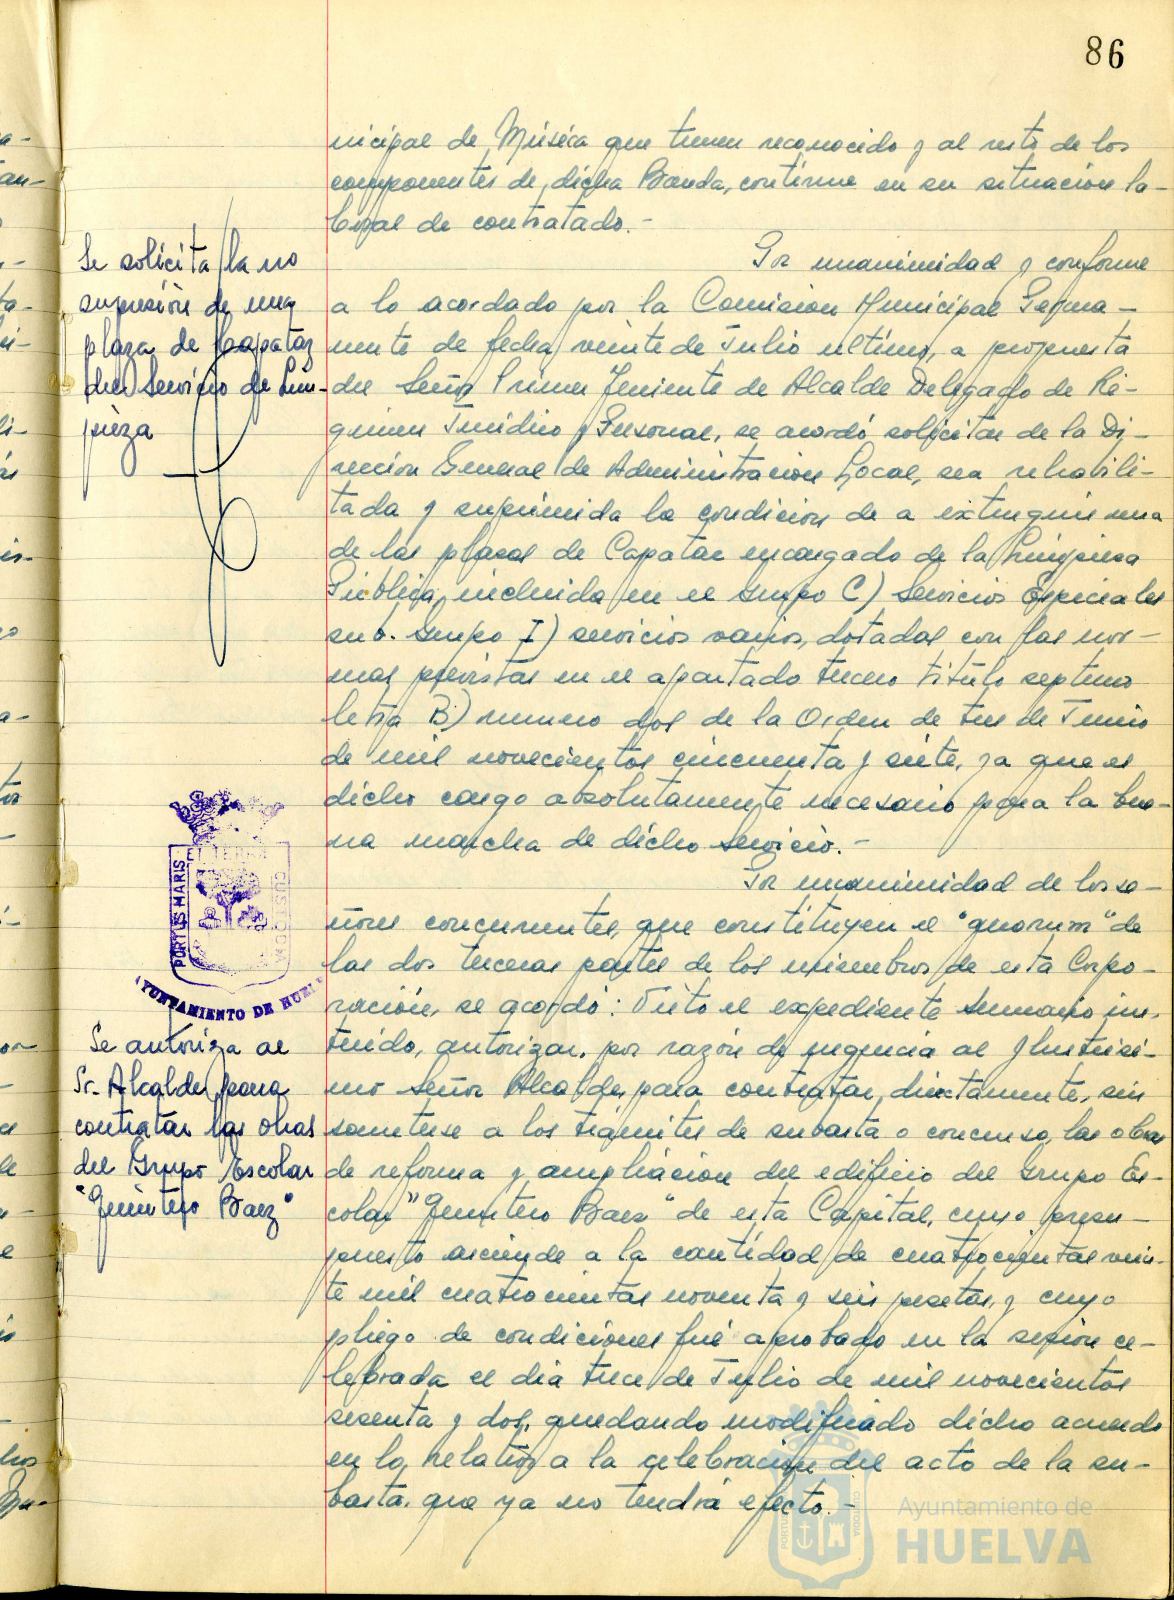 86
nicipal de Música que tienen reconocido y al resto de los
componentes de dicha Banda, continue en su situación la-
boral de contratado.-
Se solicita la no
supresión de una
plaza de Capataz
del Servicio de Lim-
pieza
Por unanimidad y conforme
a lo acordado por la Comisión Municipal Perma-
nente de fecha veinte de Julio ultimo, a propuesta
del Señor Primer Teniente de Alcalde Delegado de Ré-
gimen Jurídico y Personal, se acordó solicitar de la Di-
rección General de Administración Local, sea rehabili-
tada y suprimida la condición de a extinguir una
de las plazas de Capataz encargado de la Limpieza
Pública, incluida en el Grupo C) Servicios Especiales
sub. Grupo I) servicios varios, dotadas con las nor-
mas previstas en el apartado tercero titulo septimo
letra B) numero dos de la Orden de tres de Junio
de mil novecientos cincuenta y siete, ya que es
dicho cargo absolutamente necesario para la bue-
na marcha de dicho servicio.-
PORTUS MARIS
ET TERRA
CUSTODIA
AYUNTAMIENTO DE HUELVA
Se autoriza al
Sr. Alcalde para
contratar las obras
del Grupo Escolar
"Quintero Baez"
Por unanimidad de los se-
ñores concurrentes, que constituyen el "quorum" de
las dos terceras partes de los miembros de esta Corpo-
ración, se acordó: Visto el expediente sumario ins-
truido, autorizar, por razón de urgencia al Ilustrisi-
mo Señor Alcalde, para contratar, directamente, sin
someterse a los trámites de subasta o concurso, las obras
de reforma y ampliación del edificio del Grupo Es-
colar "Quintero Baez" de esta Capital, cuyo presu-
puesto asciende a la cantidad de cuatrocientas vein-
te mil cuatrocientas noventa y seis pesetas, y cuyo
pliego de condiciones fué aprobado en la sesión ce-
lebrada el día trece de Julio de mil novecientos
sesenta y dos, quedando modificado dicho acuerdo
en lo relativo a la celebración del acto de la su-
basta, que ya no tendrá efecto.-
Ayuntamiento de
HUELVA